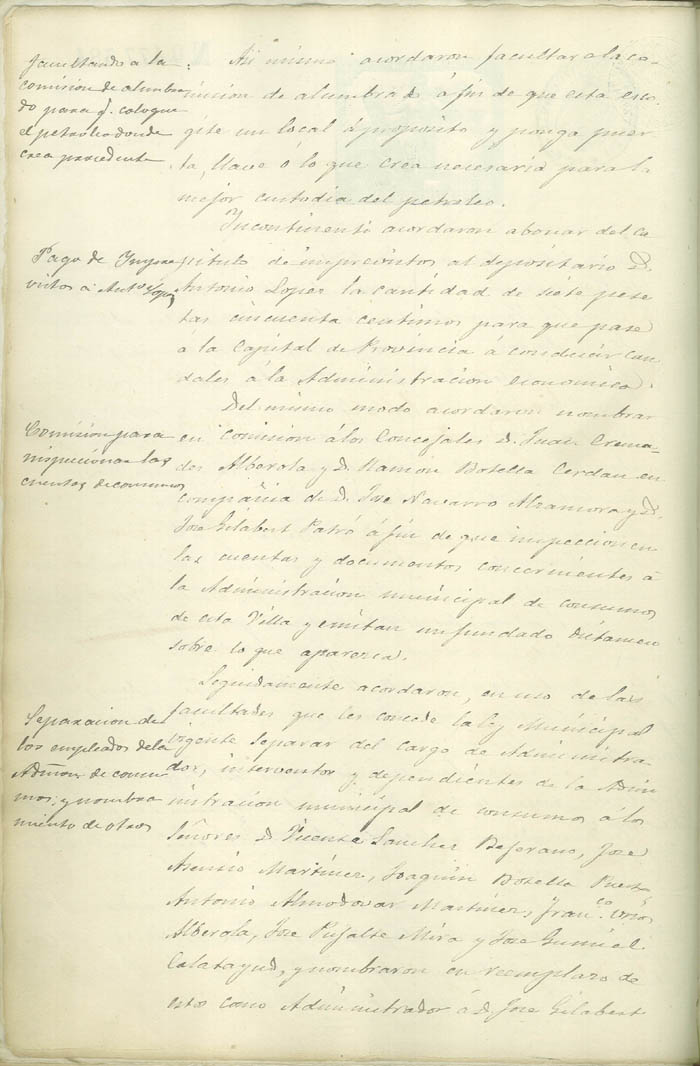 facultando a la
comision de alumbra
do para q. coloque
el petróleo donde
crea procedente
Asi mismo acordaron facultar a la co-
mision de alumbrado á fin de que esta esco-
gite un local á propósito y ponga puer
ta, llave ó lo que crea necesario para la
mejor custodia del petroleo.
Pago de Impre
vistos a Antº Lopez
Incontinenti acordaron abonar del ca
pitulo de imprevistos al depositario D.
Antonio Lopez la cantidad de siete pese
tas cincuenta centimos para que pase
a la Capital de Provincia á conducir cau
dales á la Administracion economica.
Comision para
inspeccionar las
cuentas de consumos
Del mismo modo acordaron nombrar
en comision á los Concejales D. Juan Crema-
des Alberola y D. Ramon Botella Cerdan en
compañia de D. Jose Navarro Alzamora y D.
Jose Gilabert Patró á fin de que inspeccionen
las cuentas y documentos concernientes á
la Administracion municipal de consumos
de esta Villa y emitan un fundado dictamen
sobre lo que aparezca.
Separacion de
los empleados de la
Admon de consu
mos: y nombra
miento de otros
Seguidamente acordaron, en uso de las
facultades que les concede la ley Municipal
vigente separar del cargo de Administra-
dor, interventor y dependientes de la Admi
nistracion municipal de consumos á los
Señores D. Vicente Sanchez Beferano, Jose
Asensio Martinez, Joaquin Botella
Antonio Almodovar Martinez, Franco.
Alberola, Jose Pujalte Mira y Jose Gumiel
Calatayud, y nombraron en reemplazo de
estos como Administrador á D. Jose Gilabert